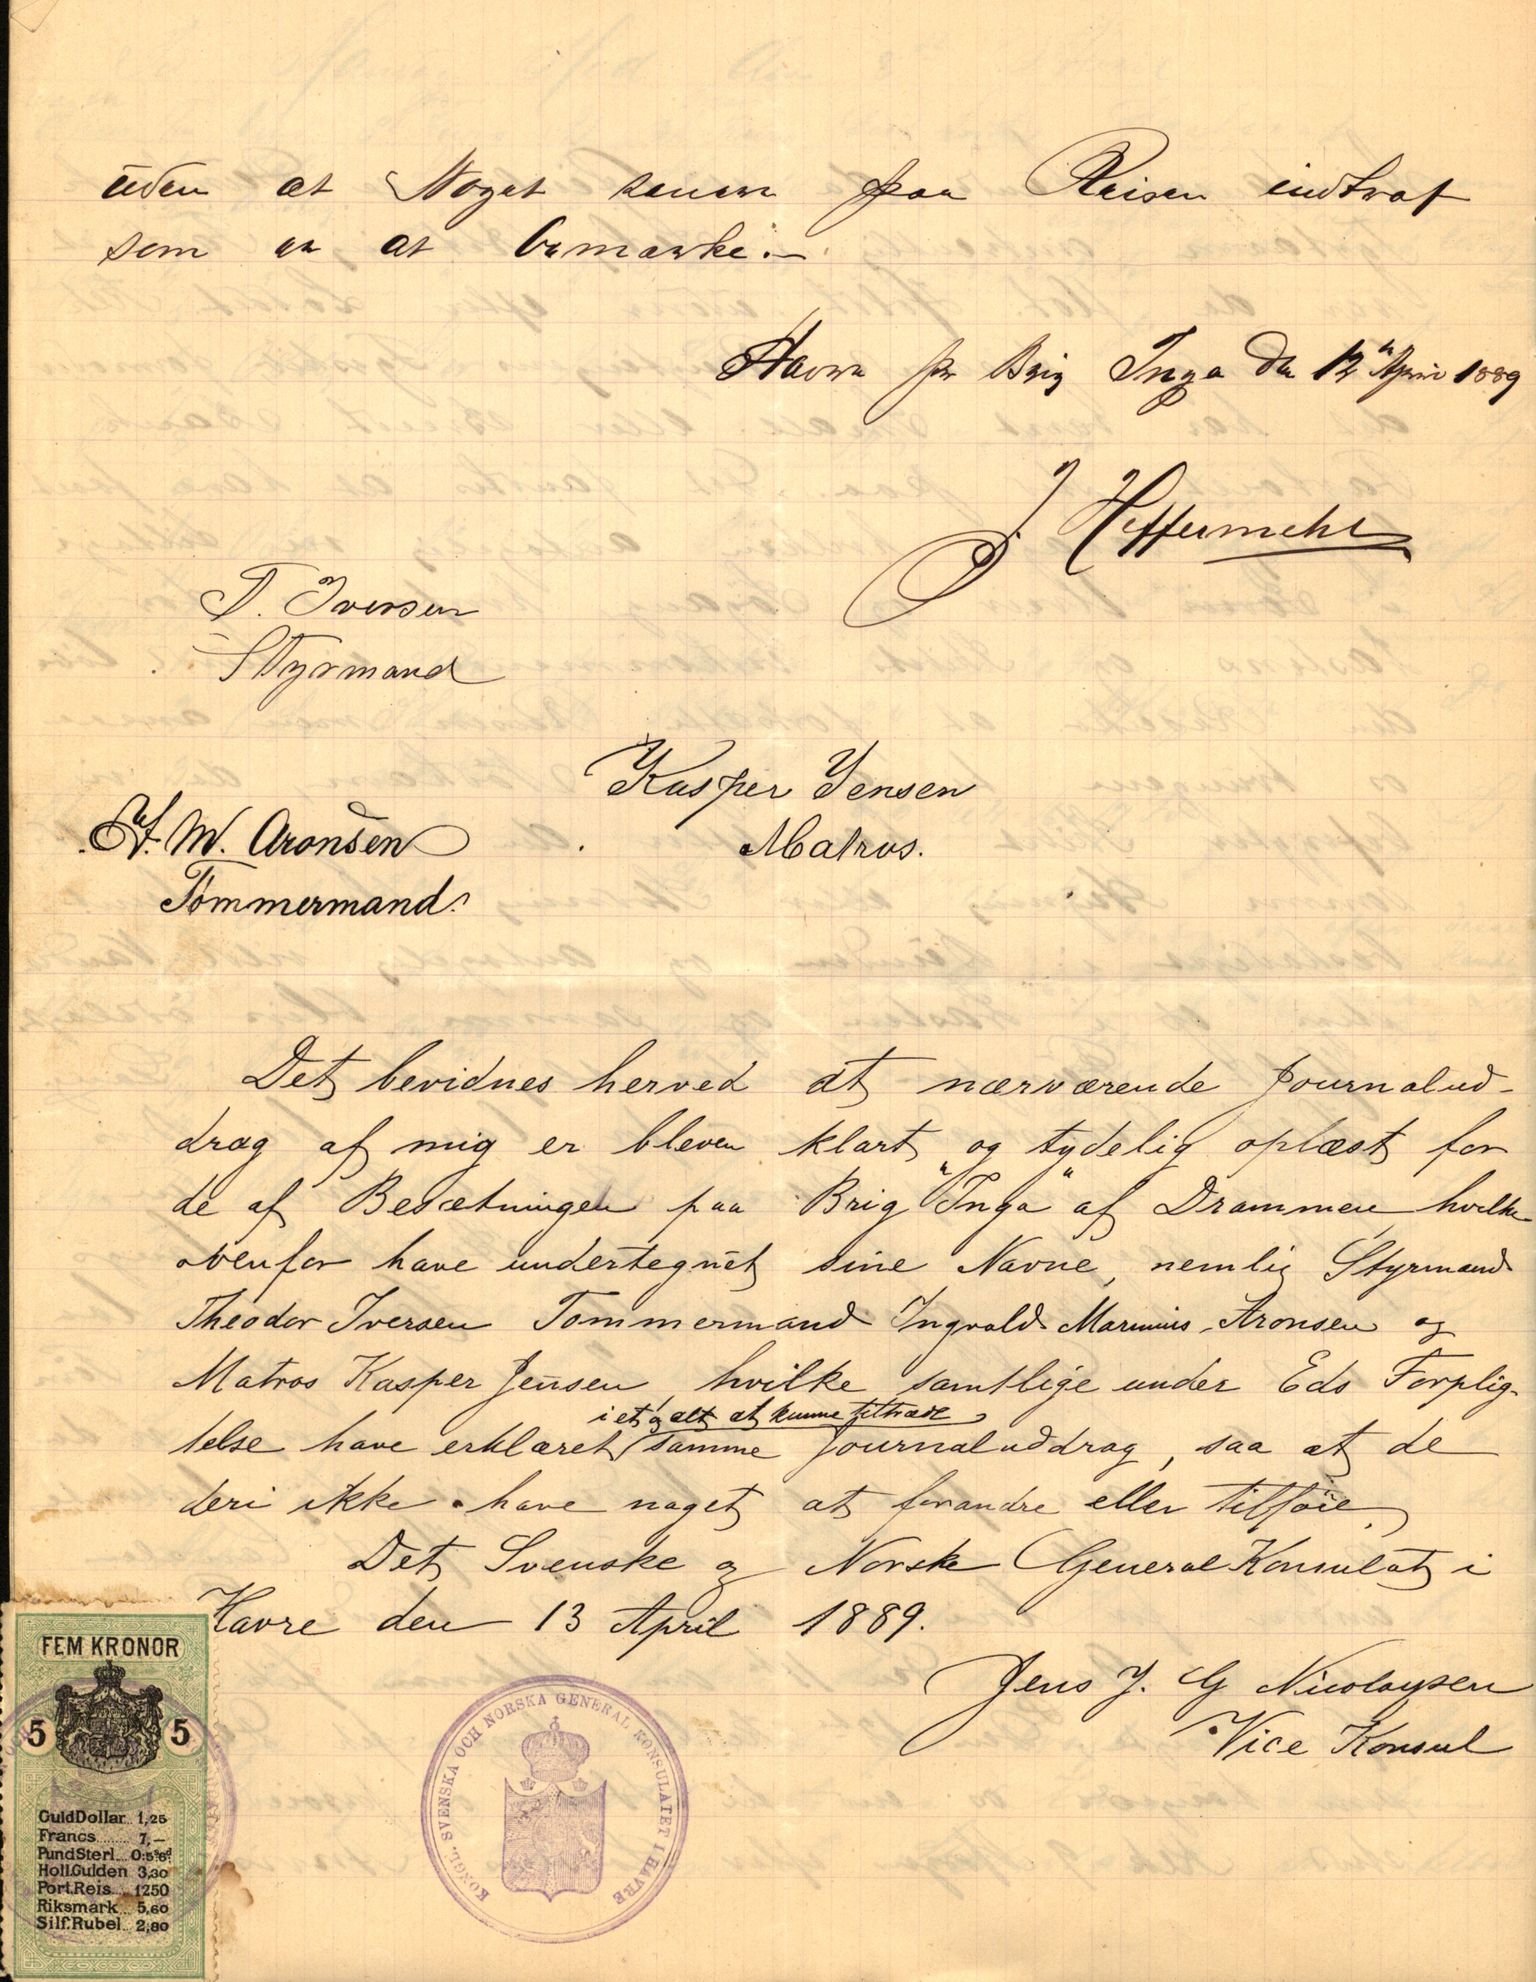 uden at Noget senere paa Reisen indtraf
som er at bemærke.—
Havre fra Brig Inga den 12te April 1889
J. Heffermehl
T. Iversen
Styrmand
Kasper Jensen
Matros.
I. M. Aronsen
Tömmermand.
Det bevidnes herved at nærværende Journalud-
drag af mig er bleven klart og tydelig oplæst for
de af Besætningen paa Brig "Inga" af Drammen hvilke
ovenfor have undertegnet sine Navne, nemlig Styrmand
Theodor Iversen Tømmermand Ingvald Marinius Aronsen og
Matros Kasper Jensen, hvilke samtlige under Eds Forplig-
i et og alt at kunne tiltræde
telse have erklæret samme Journaluddrag, saa at de
deri ikke have noget at forandre eller tilføie.
Det Svenske og Norske General Konsulat i
Havre den 13 April 1889.
Jens J. G Nicolaysen
Vice Konsul
FEM KRONOR
5 5
GuldDollar.. 1,25
Francs........ 7,—
PundSterl... 0:5s6d
Holl.Gulden 3,30
Port.Reis.... 1250
Riksmark.. 5,60
Silf.Rubel.. 2,80
KONGL. SVENSKA OCH NORSKA GENERAL KONSULATET I HAVRE